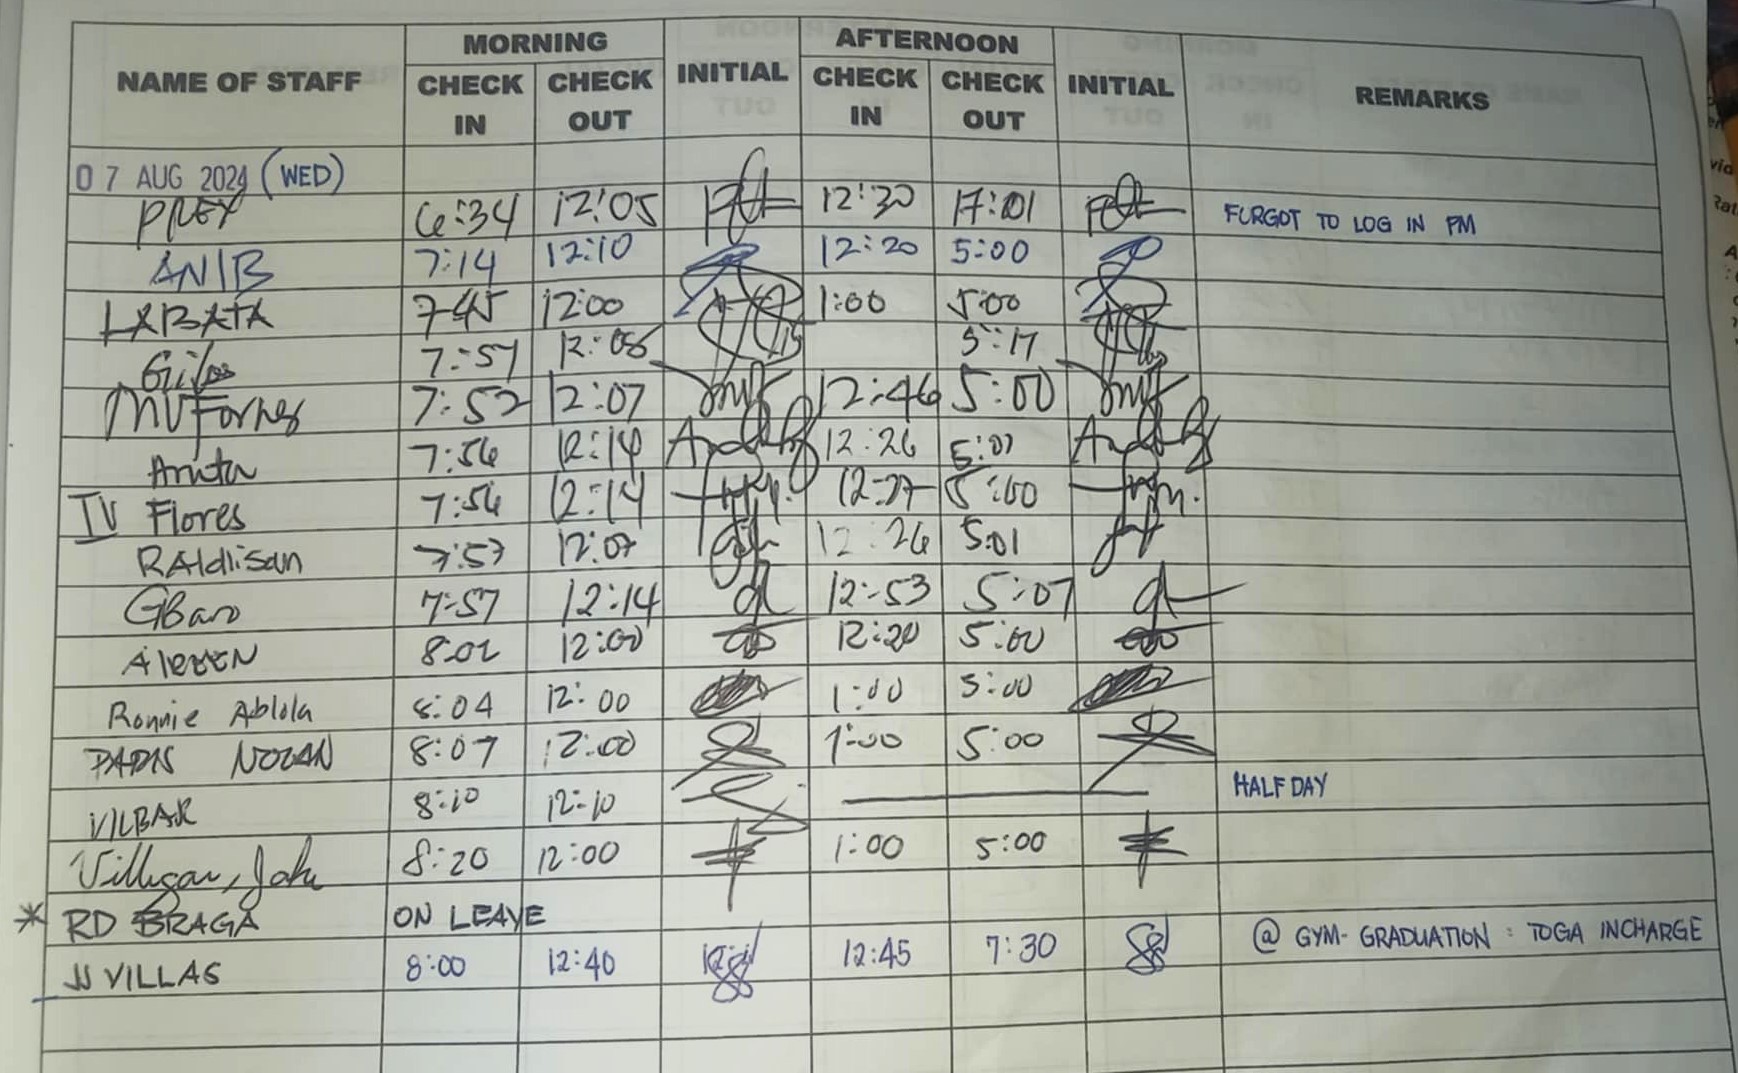 NAME OF STAFF MORNING INITIAL AFTERNOON INITIAL REMARKS
CHECK IN CHECK OUT CHECK IN CHECK OUT
07 AUG 2024 (WED)
PREY 6:34 12:05 12:30 17:01 FURGOT TO LOG IN PM
ANIB 7:14 12:10 12:20 5:00
LABATA 7:45 12:00 1:00 5:00
7:57 12:08 5:17
MVFornes 7:52 12:07 12:46 5:00
7:56 12:14 12:26 5:07
IV Flores 7:56 12:14 12:27 5:00
RAldisan 7:57 12:07 12:26 5:01
GBaro 7:57 12:14 12:53 5:07
AIREEN 8:02 12:00 12:20 5:00
Ronnie Ablola 8:04 12:00 1:00 5:00
8:07 12:00 1:00 5:00
VILBAR 8:10 12:10 HALF DAY
John 8:20 12:00 1:00 5:00
* RD BRAGA ON LEAVE
JJ VILLAS 8:00 12:40 12:45 7:30 @ GYM- GRADUATION : TOGA INCHARGE